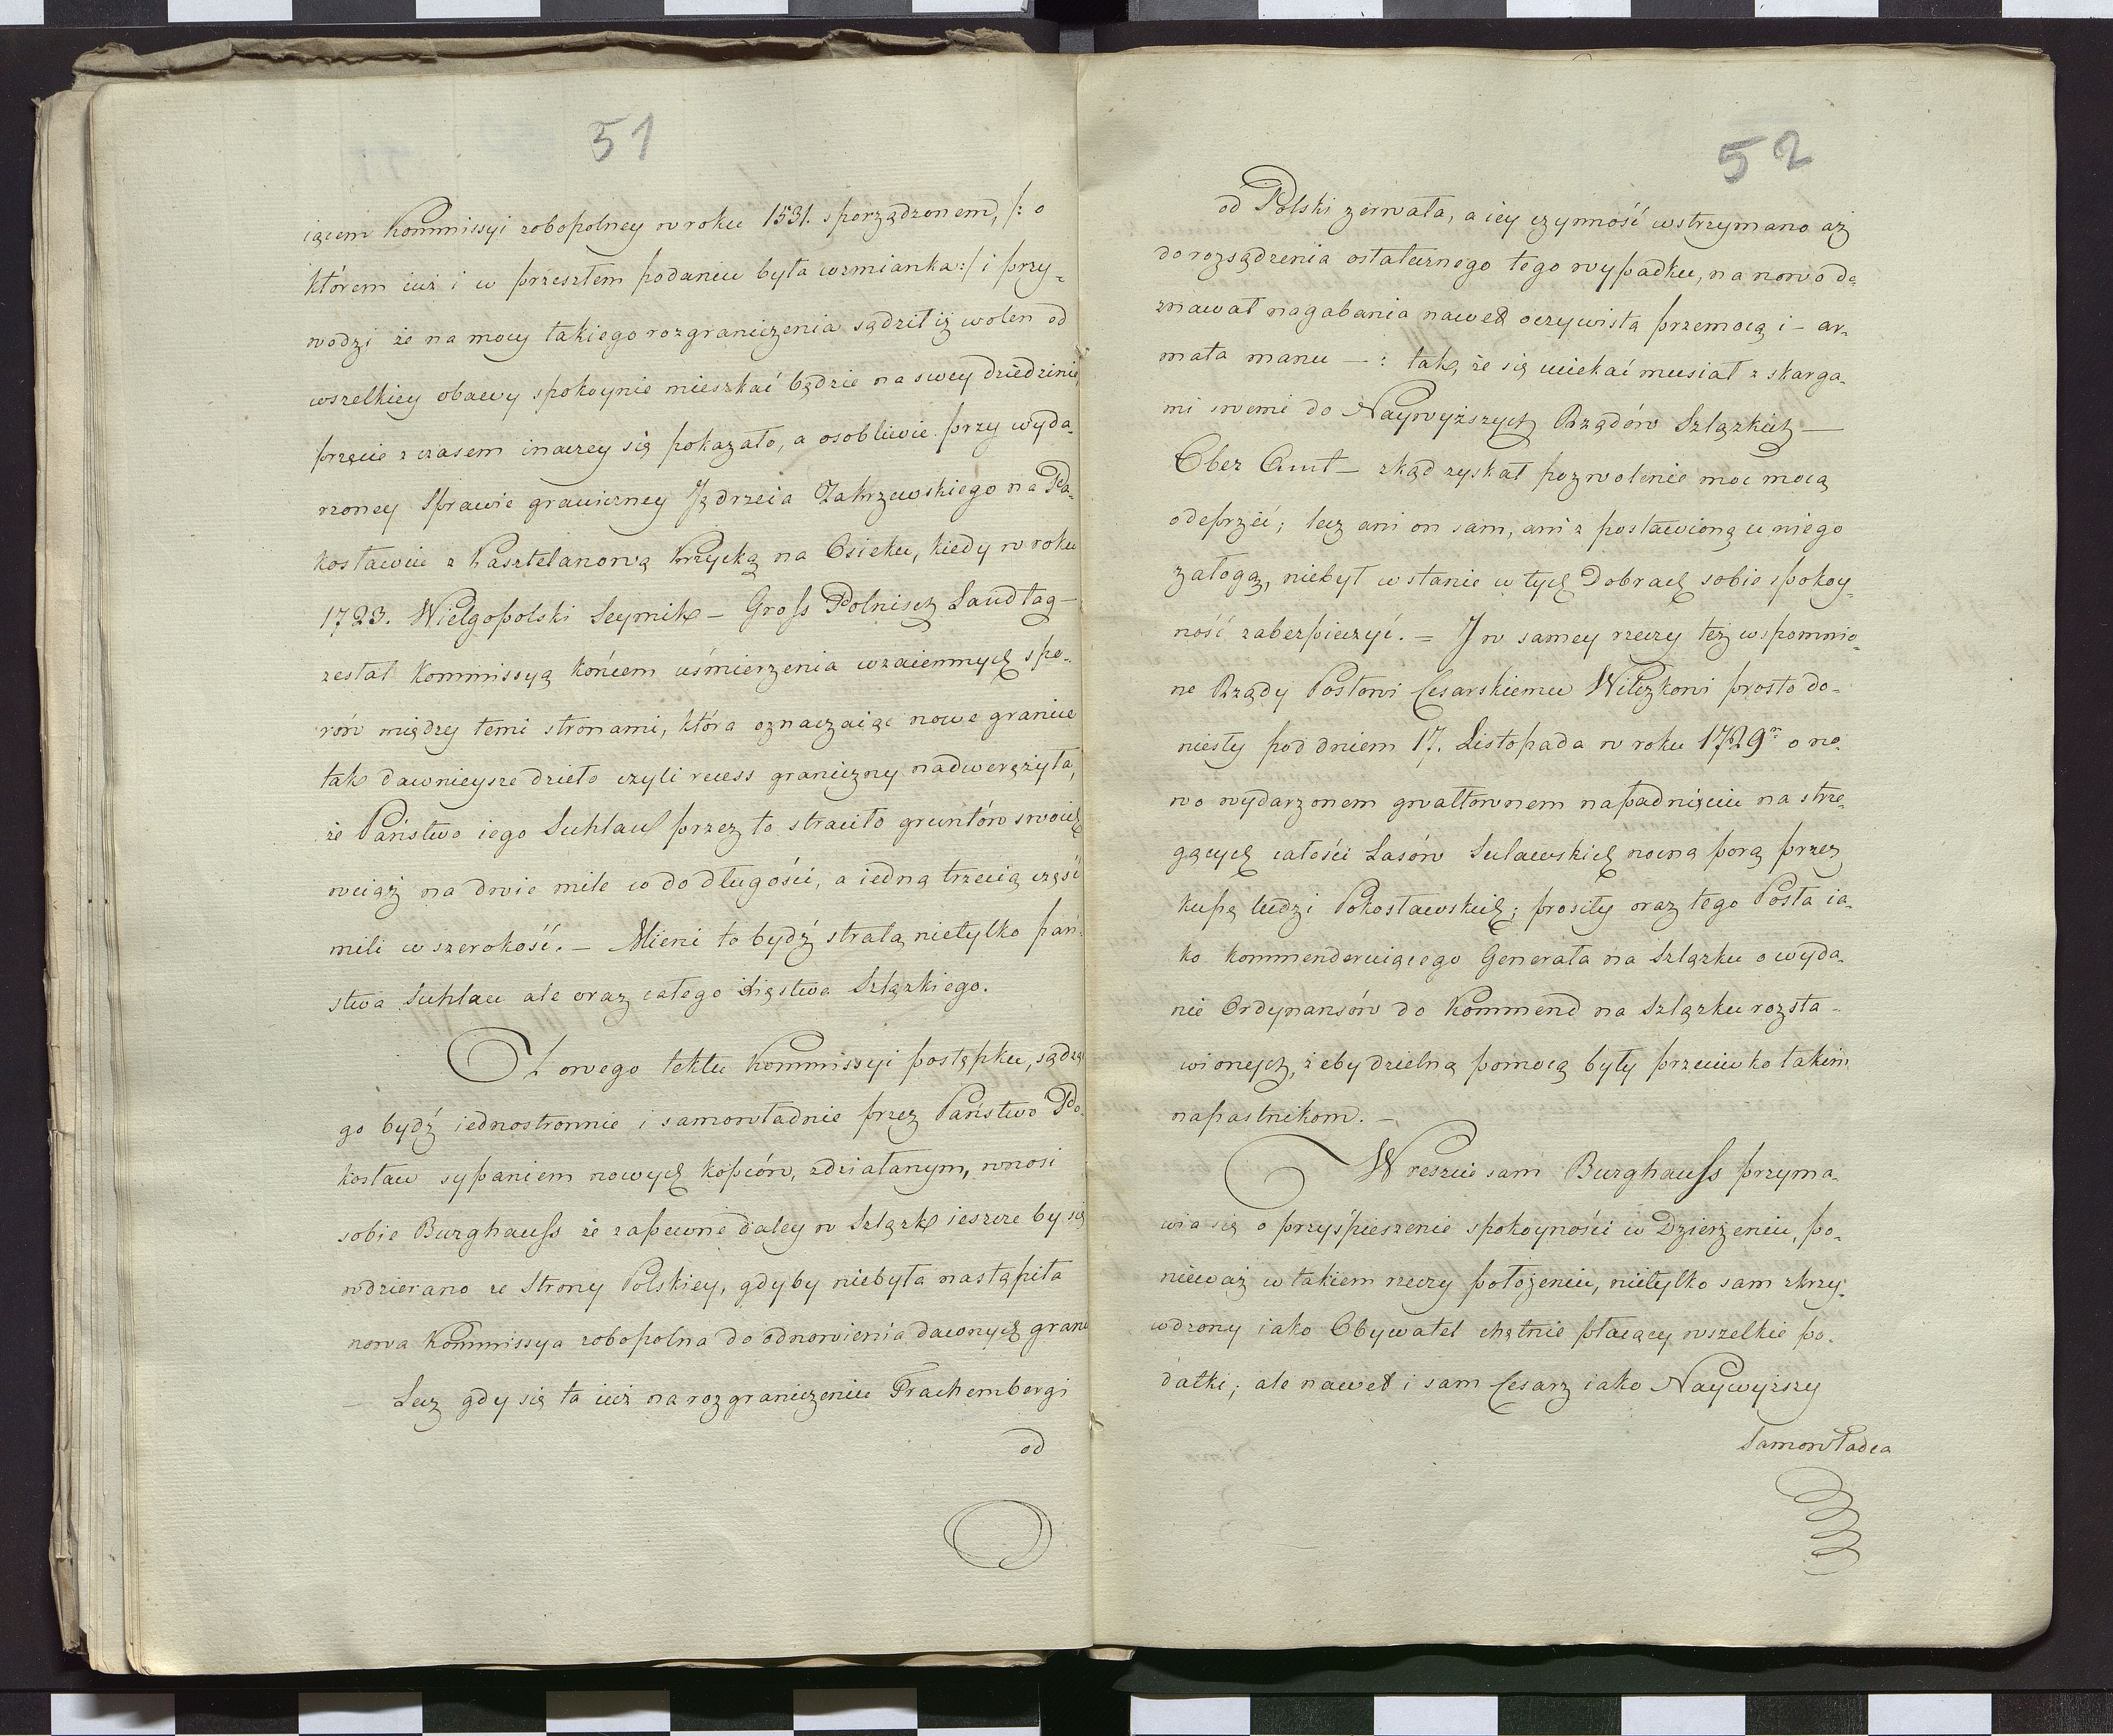 51
iącem Kommissyi zobopolney w roku 1531. sporządzonem, /: o
którem iuż i w przeszłem podaniu była wzmianka :/ i przy-
wodzi że na mocy takiego rozgraniczenia sądził iż wolen od
wszelkiey obawy spokoynie mieszkać będzie na swey dziedzinie,
przecie z czasem inaczey się pokazało, a osobliwie przy wyda-
rzoney Sprawie graniczney Jędrzeia Zakrzewskiego na Po-
kosławiu z Kasztelanową Krzycką na Osieku, kiedy w roku
1723. Wielgopolski Seymik – Gross Polnisch Landtag –
zesłał Kommissyą końcem uśmierzenia wzaiemnych spo-
rów między temi stronami, która oznaczaiąc nowe granice
tak dawnieysze dzieło czyli recess graniczny nadweręzyła,
że Państwo iego Suhlau przez to straciło gruntów swoich
wciąż na dwie mile co do długości, a iedną trzecią część
mili w szerokość. – Mieni to bydź stratą nietylko pań-
stwa Suhlau ale oraz całego Xięstwa Szląskiego.
Z owego tektu Kommissyi postępku, sądzą-
go bydź iednostronnie i samowładnie przez Państwo Po-
kosław sypaniem nowych kopców, zdziałanym, wnosi
sobie Burghauss że zapewne daley w Szlązk ieszcze by się
wdzierano ze Strony Polskiey, gdyby niebyła nastąpiła
nowa Kommissya zobopolna do odnowienia dawnych granic
– Lecz gdy się ta iuż na rozgraniczeniu Trachembergi
od
52
od Polski zerwała, a iey czynność wstrzymano aż
do rozsądzenia ostatecznego tego wypadku, na nowo do-
znawał nagabania nawet oczywistą przemocą i – ar-
mata manu – : tak, że się uciekać musiał z skarga-
mi swemi do Naywyższych Rządów Szląskich –
Ober Amt – zkąd zyskał pozwolenie moc mocą
odeprzeć; lecz ani on sam, ani z postawioną u niego
załogą, niebył w stanie w tych Dobrach sobie spokoy-
ność zabezpieczyć. = I w samey rzeczy też wspomnio-
ne Rządy Posłowi Cesarskiemu Wilczkowi prosto do-
niesły pod dniem 17. Listopada w roku 1729m o no-
wo wydarzonem gwałtownem napadnięciu na strze-
gących całości Lasów Sulawskich nocną porą przez
kupę ludzi Pokosławskich; prosiły oraz tego Posła ia-
ko kommenderuiącego Generała na Szląsku o wyda-
nie Ordynansów do Kommend na Szląsku rozsta-
wionych, żeby dzielną pomocą były przeciwko takim
napastnikom. –
Wreszcie sam Burghauss przyma-
wia się o przyśpieszenie spokoyności w Dzierżeniu, po-
nieważ w takiem rzeczy położeniu, nietylko sam skrzy-
wdzony iako Obywatel chętnie płacący wszelkie po-
datki; ale nawet i sam Cesarz iako Naywyższy
Samowładca